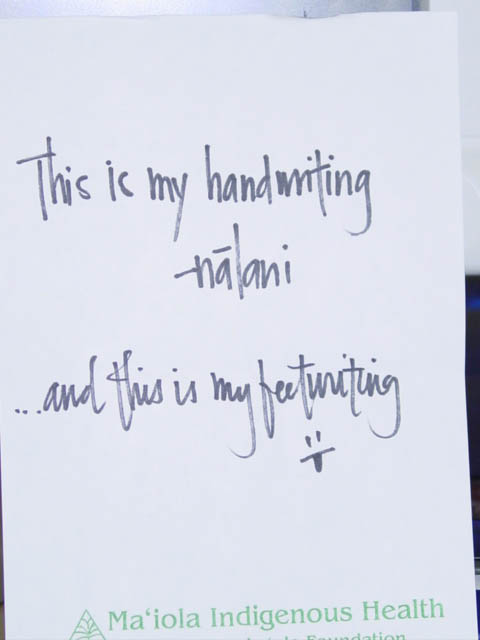 This is my handwriting
-nālani
...and this is my feetwriting
Ma'iola Indigenous Health
Foundation